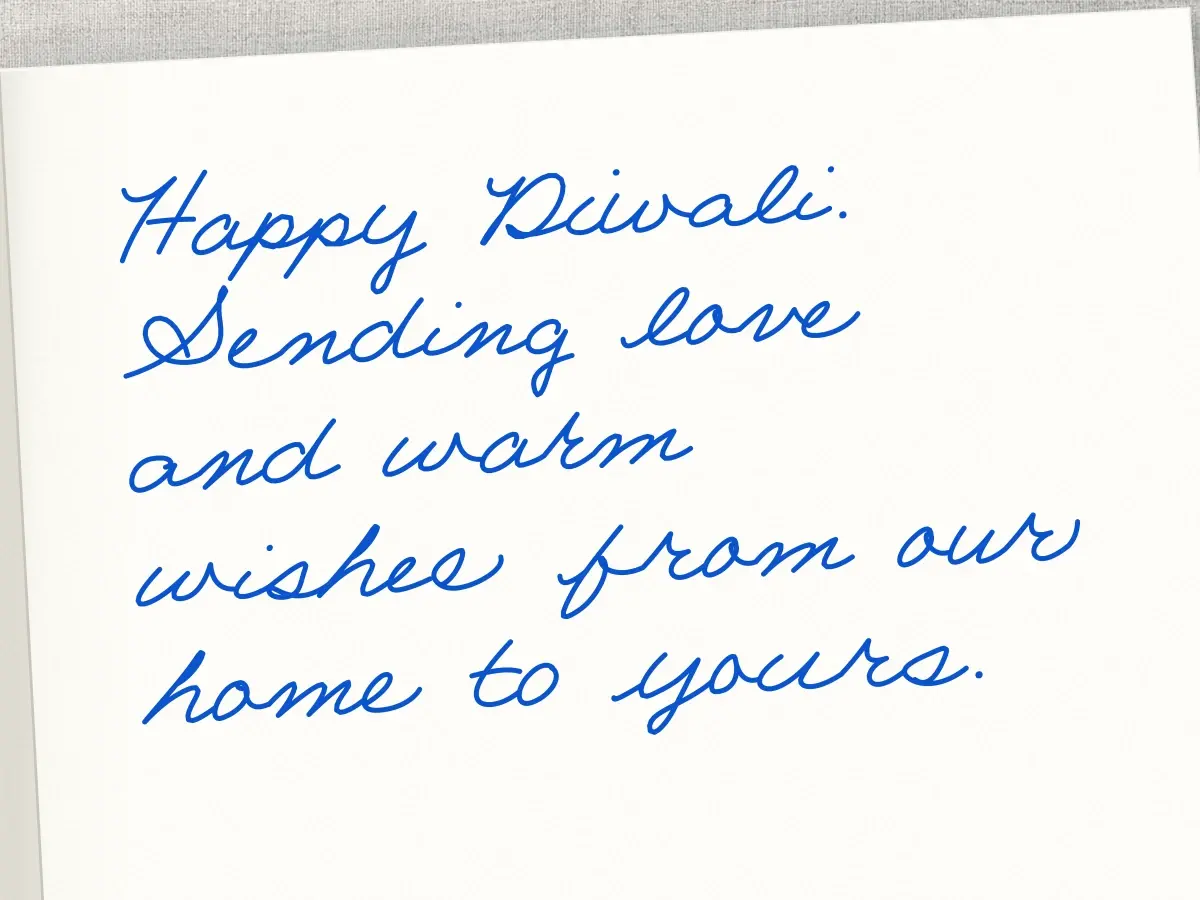 Happy Diwali.
Sending love
and warm
wishes from our
home to yours.